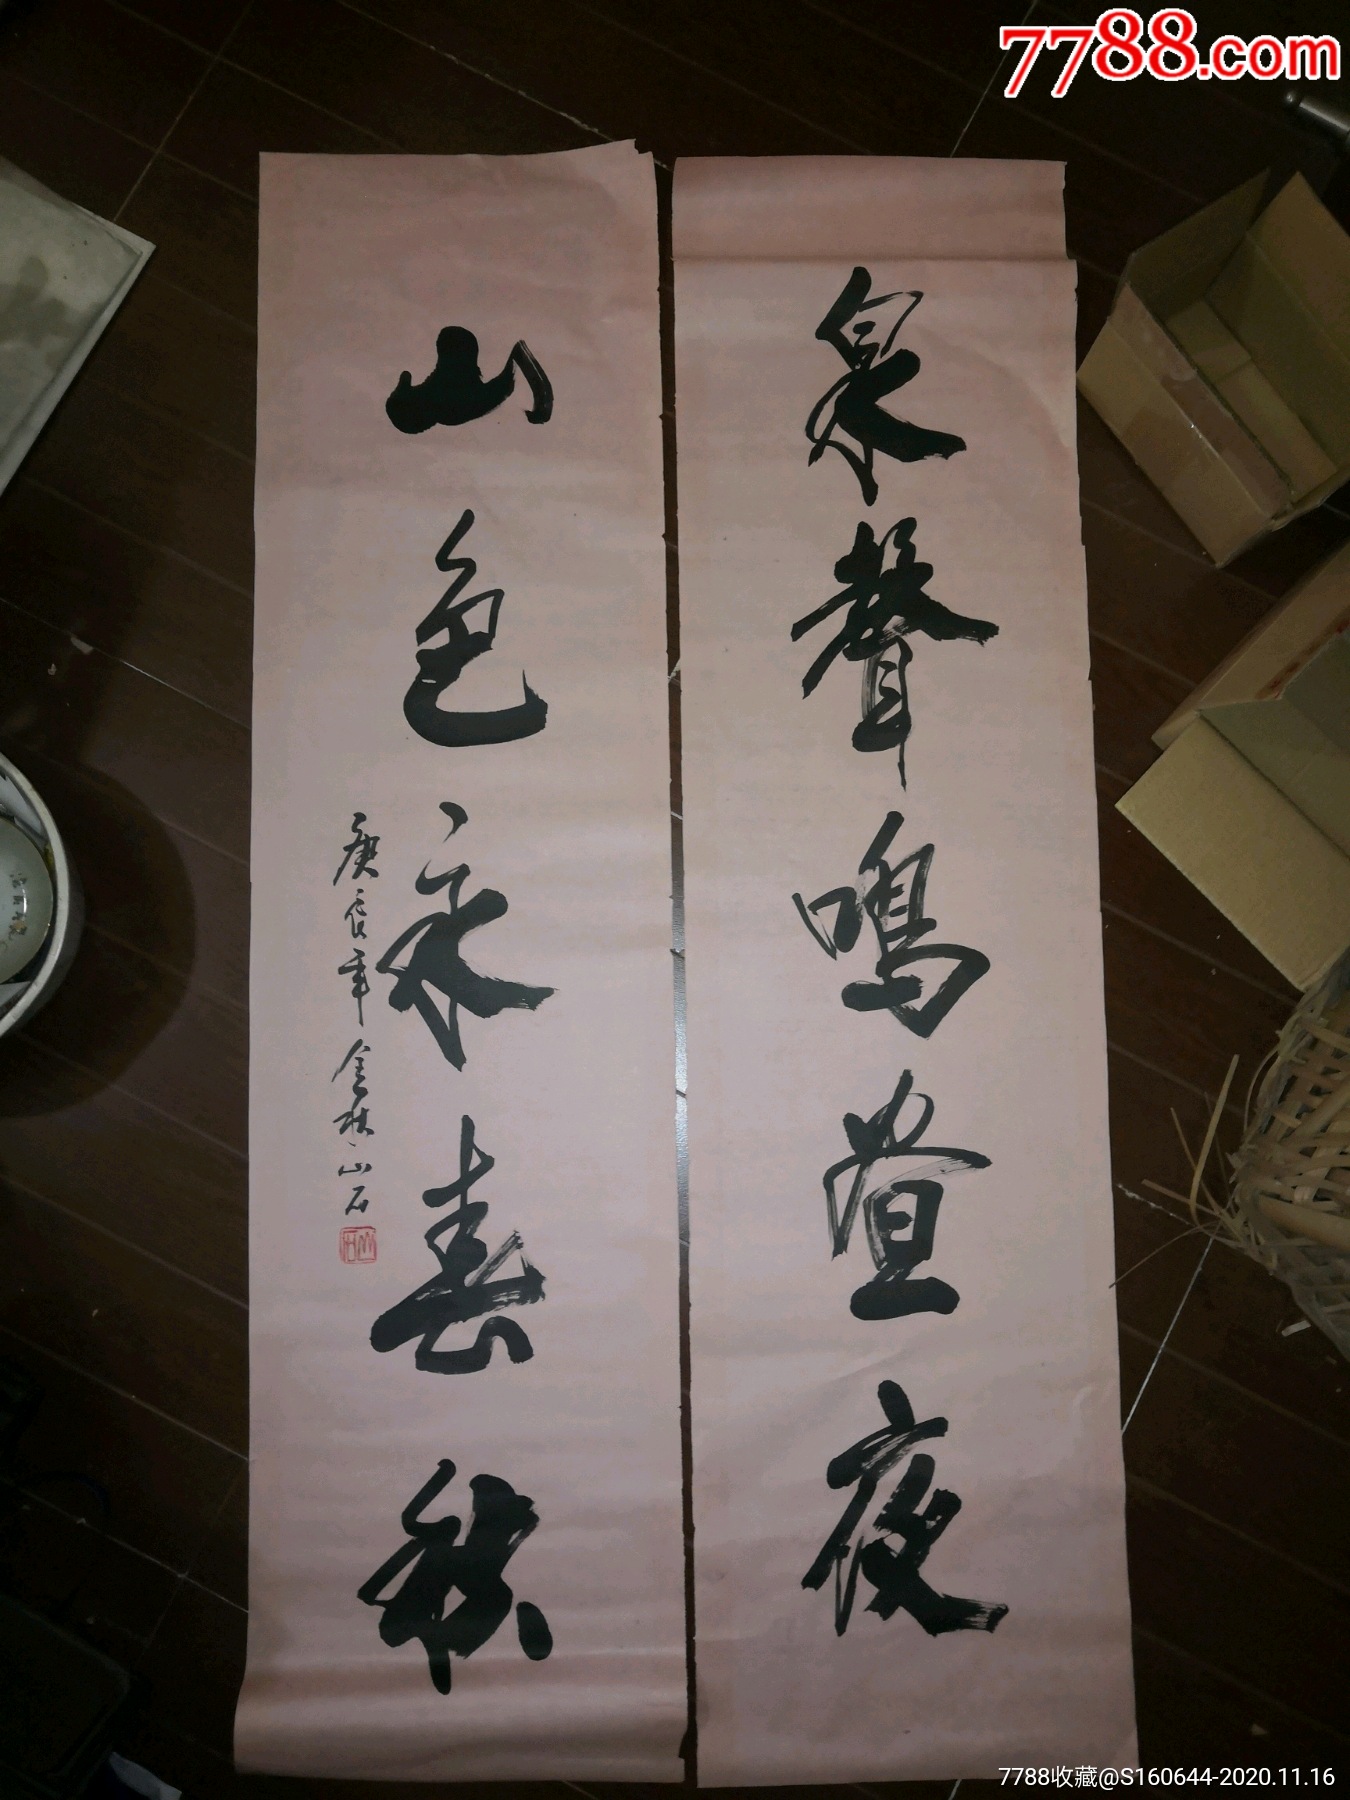 7788.com
泉聲鳴晝夜
山色永春秋
庚辰年金秋山石
山石
7788收藏@S160644-2020.11.16